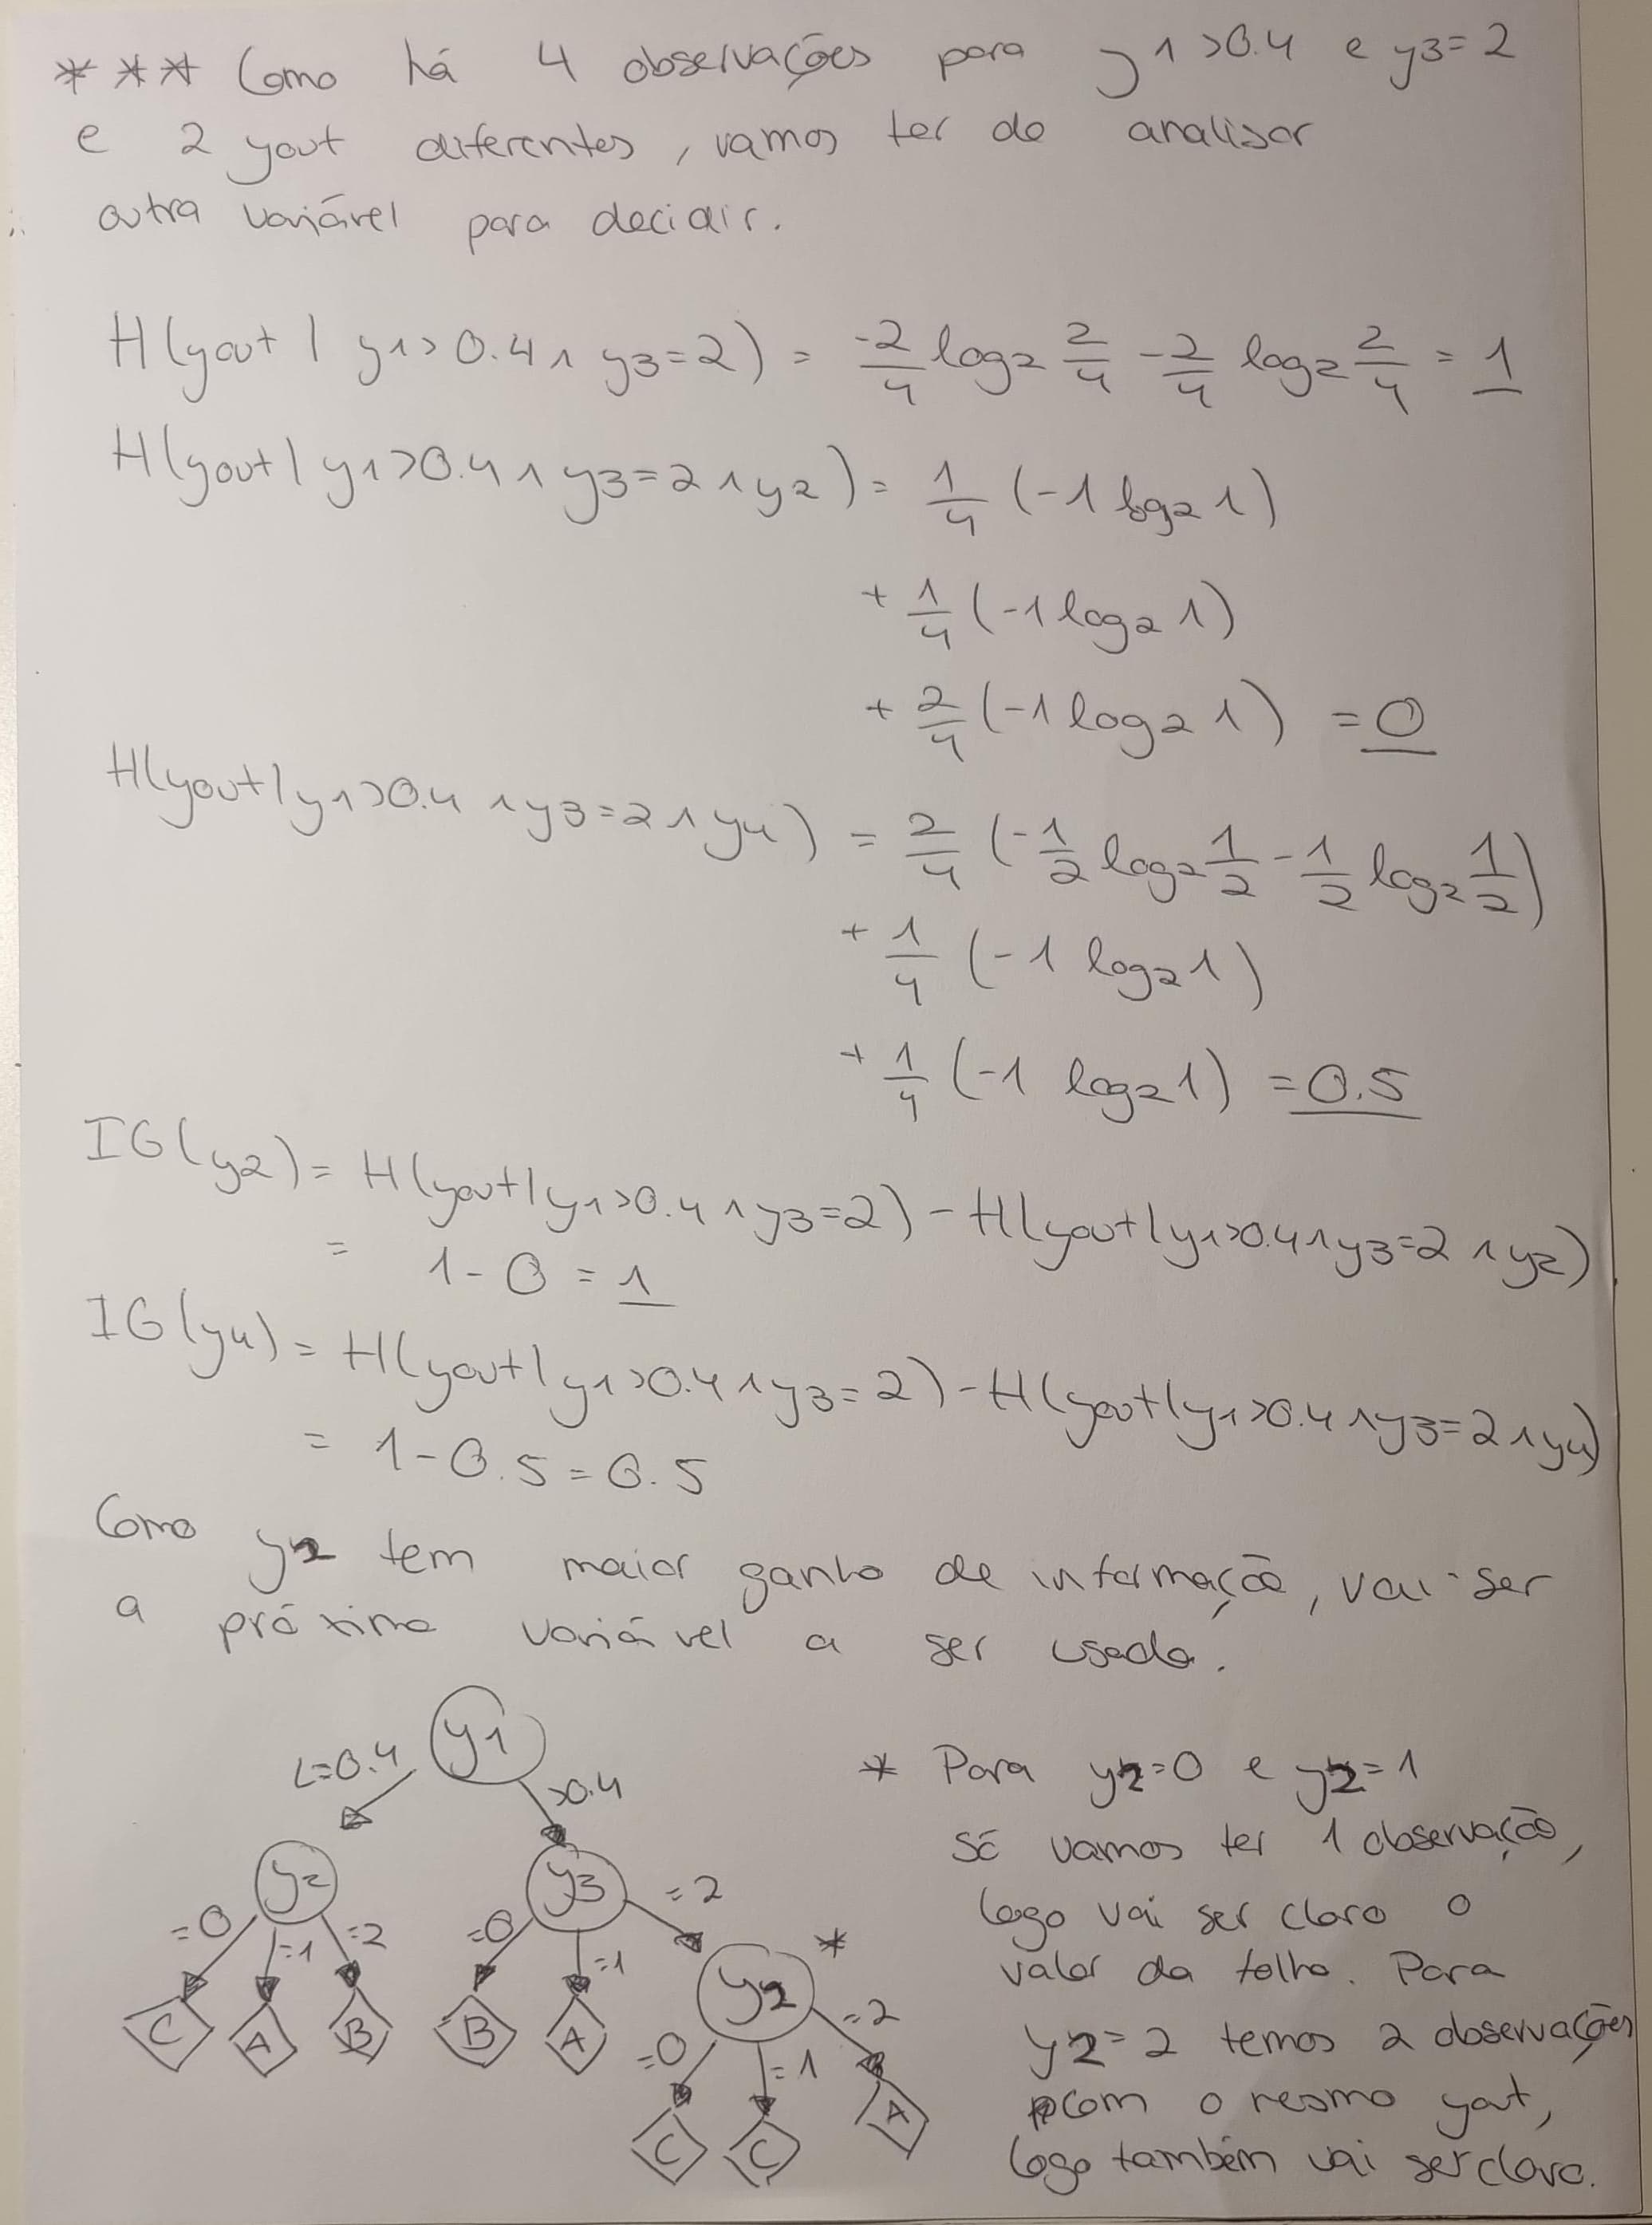 *** Como há 4 observações para y1>0.4 e y3=2
e 2 yout diferentes, vamos ter de analisar
outra variável para decidir.
H(yout | y1>0.4 ∧ y3=2) = -2/4 log2 2/4 - 2/4 log2 2/4 = 1
H(yout | y1>0.4 ∧ y3=2 ∧ y2) = 1/4 (-1 log2 1)
+ 1/4 (-1 log2 1)
+ 2/4 (-1 log2 1) = 0
H(yout | y1>0.4 ∧ y3=2 ∧ y4) = 2/4 (-1/2 log2 1/2 - 1/2 log2 1/2)
+ 1/4 (-1 log2 1)
+ 1/4 (-1 log2 1) = 0.5
IG(y2) = H(yout | y1>0.4 ∧ y3=2) - H(yout | y1>0.4 ∧ y3=2 ∧ y2)
= 1 - 0 = 1
IG(y4) = H(yout | y1>0.4 ∧ y3=2) - H(yout | y1>0.4 ∧ y3=2 ∧ y4)
= 1 - 0.5 = 0.5
Como y2 tem maior ganho de informação, vai ser
a próxima variável a ser usada.
y1
<=0.4 >0.4
y2 y3 =2
=0 =1 =2 =0 =1 y2 *
C A B B A =0 =1 =2
C C A
* Para y2=0 e y2=1
só vamos ter 1 observação,
logo vai ser claro o
valor da folha. Para
y2=2 temos 2 observações
com o mesmo yout,
logo também vai ser claro.